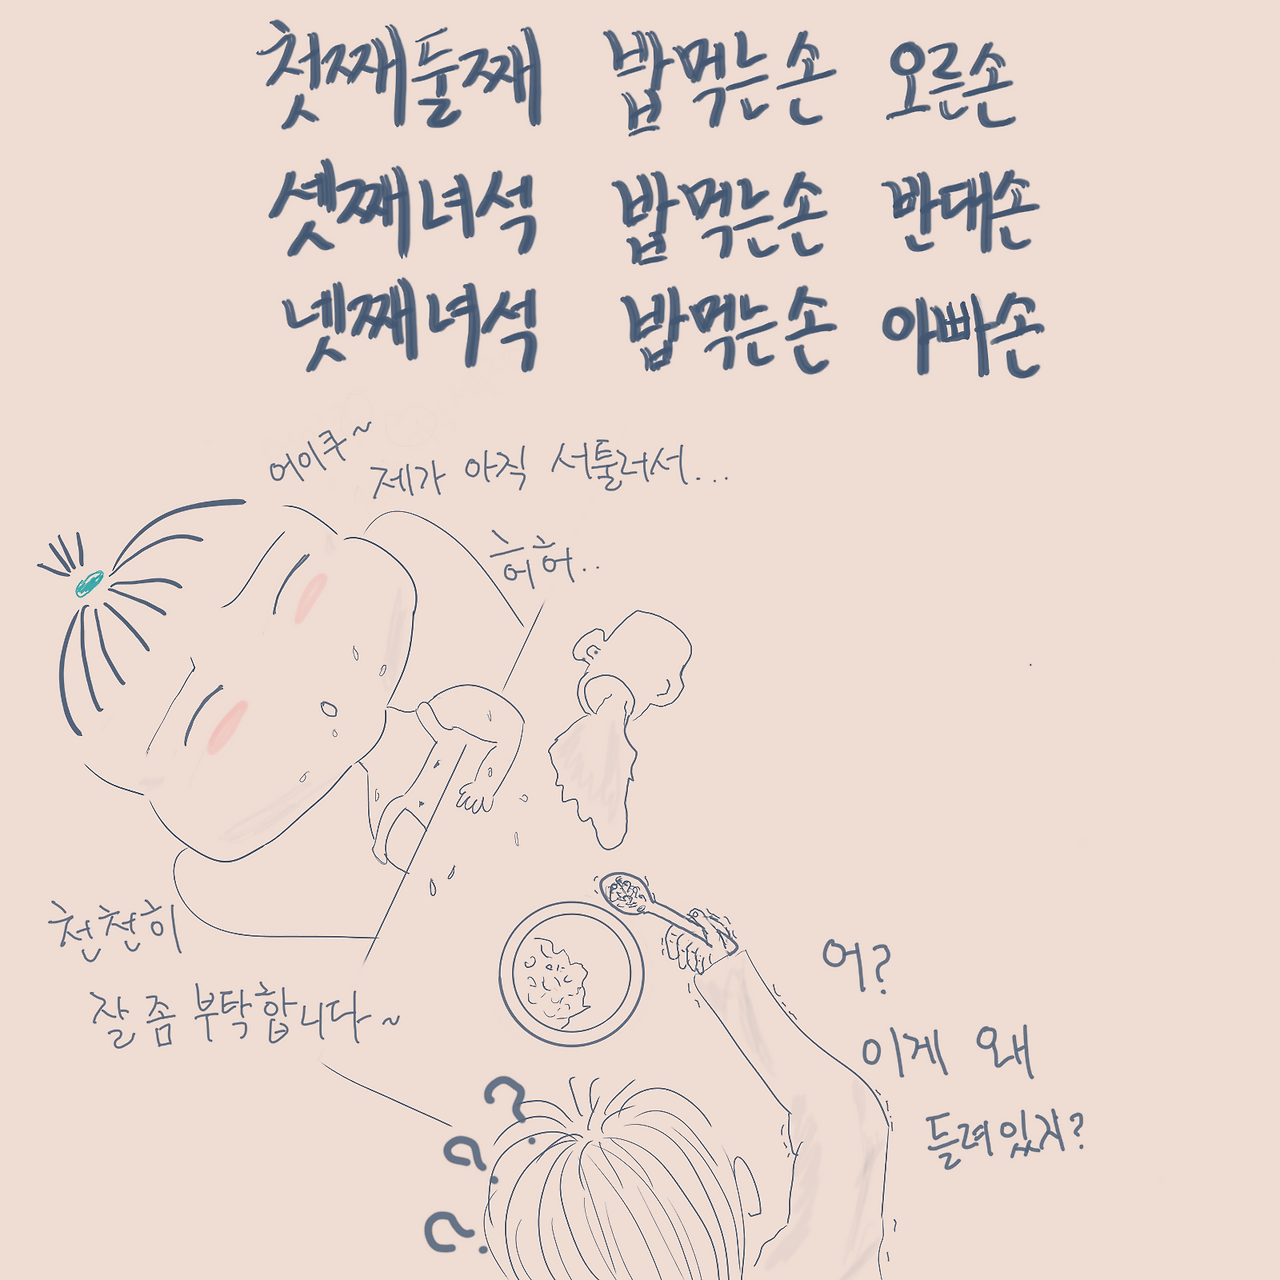 첫째둘째 밥먹는손 오른손
셋째녀석 밥먹는손 반대손
넷째녀석 밥먹는손 아빠손
어이쿠~
제가 아직 서툴러서...
허허..
천천히
잘 좀 부탁합니다~
어?
이게 왜
들려있지?
? ? ?